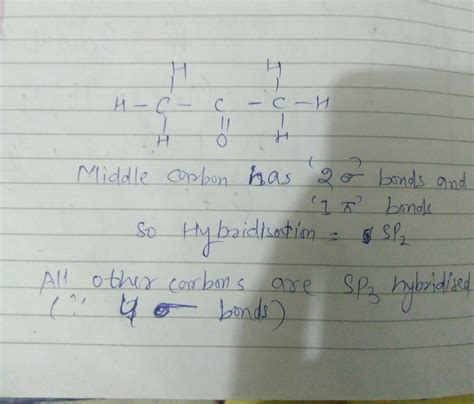 H H
H - C - C - C - H
H O H
Middle carbon has '2 σ' bonds and
'1 π' bonds
So Hybridisation = SP2
All other carbons are SP3 hybridised
(∵ 4 σ bonds)